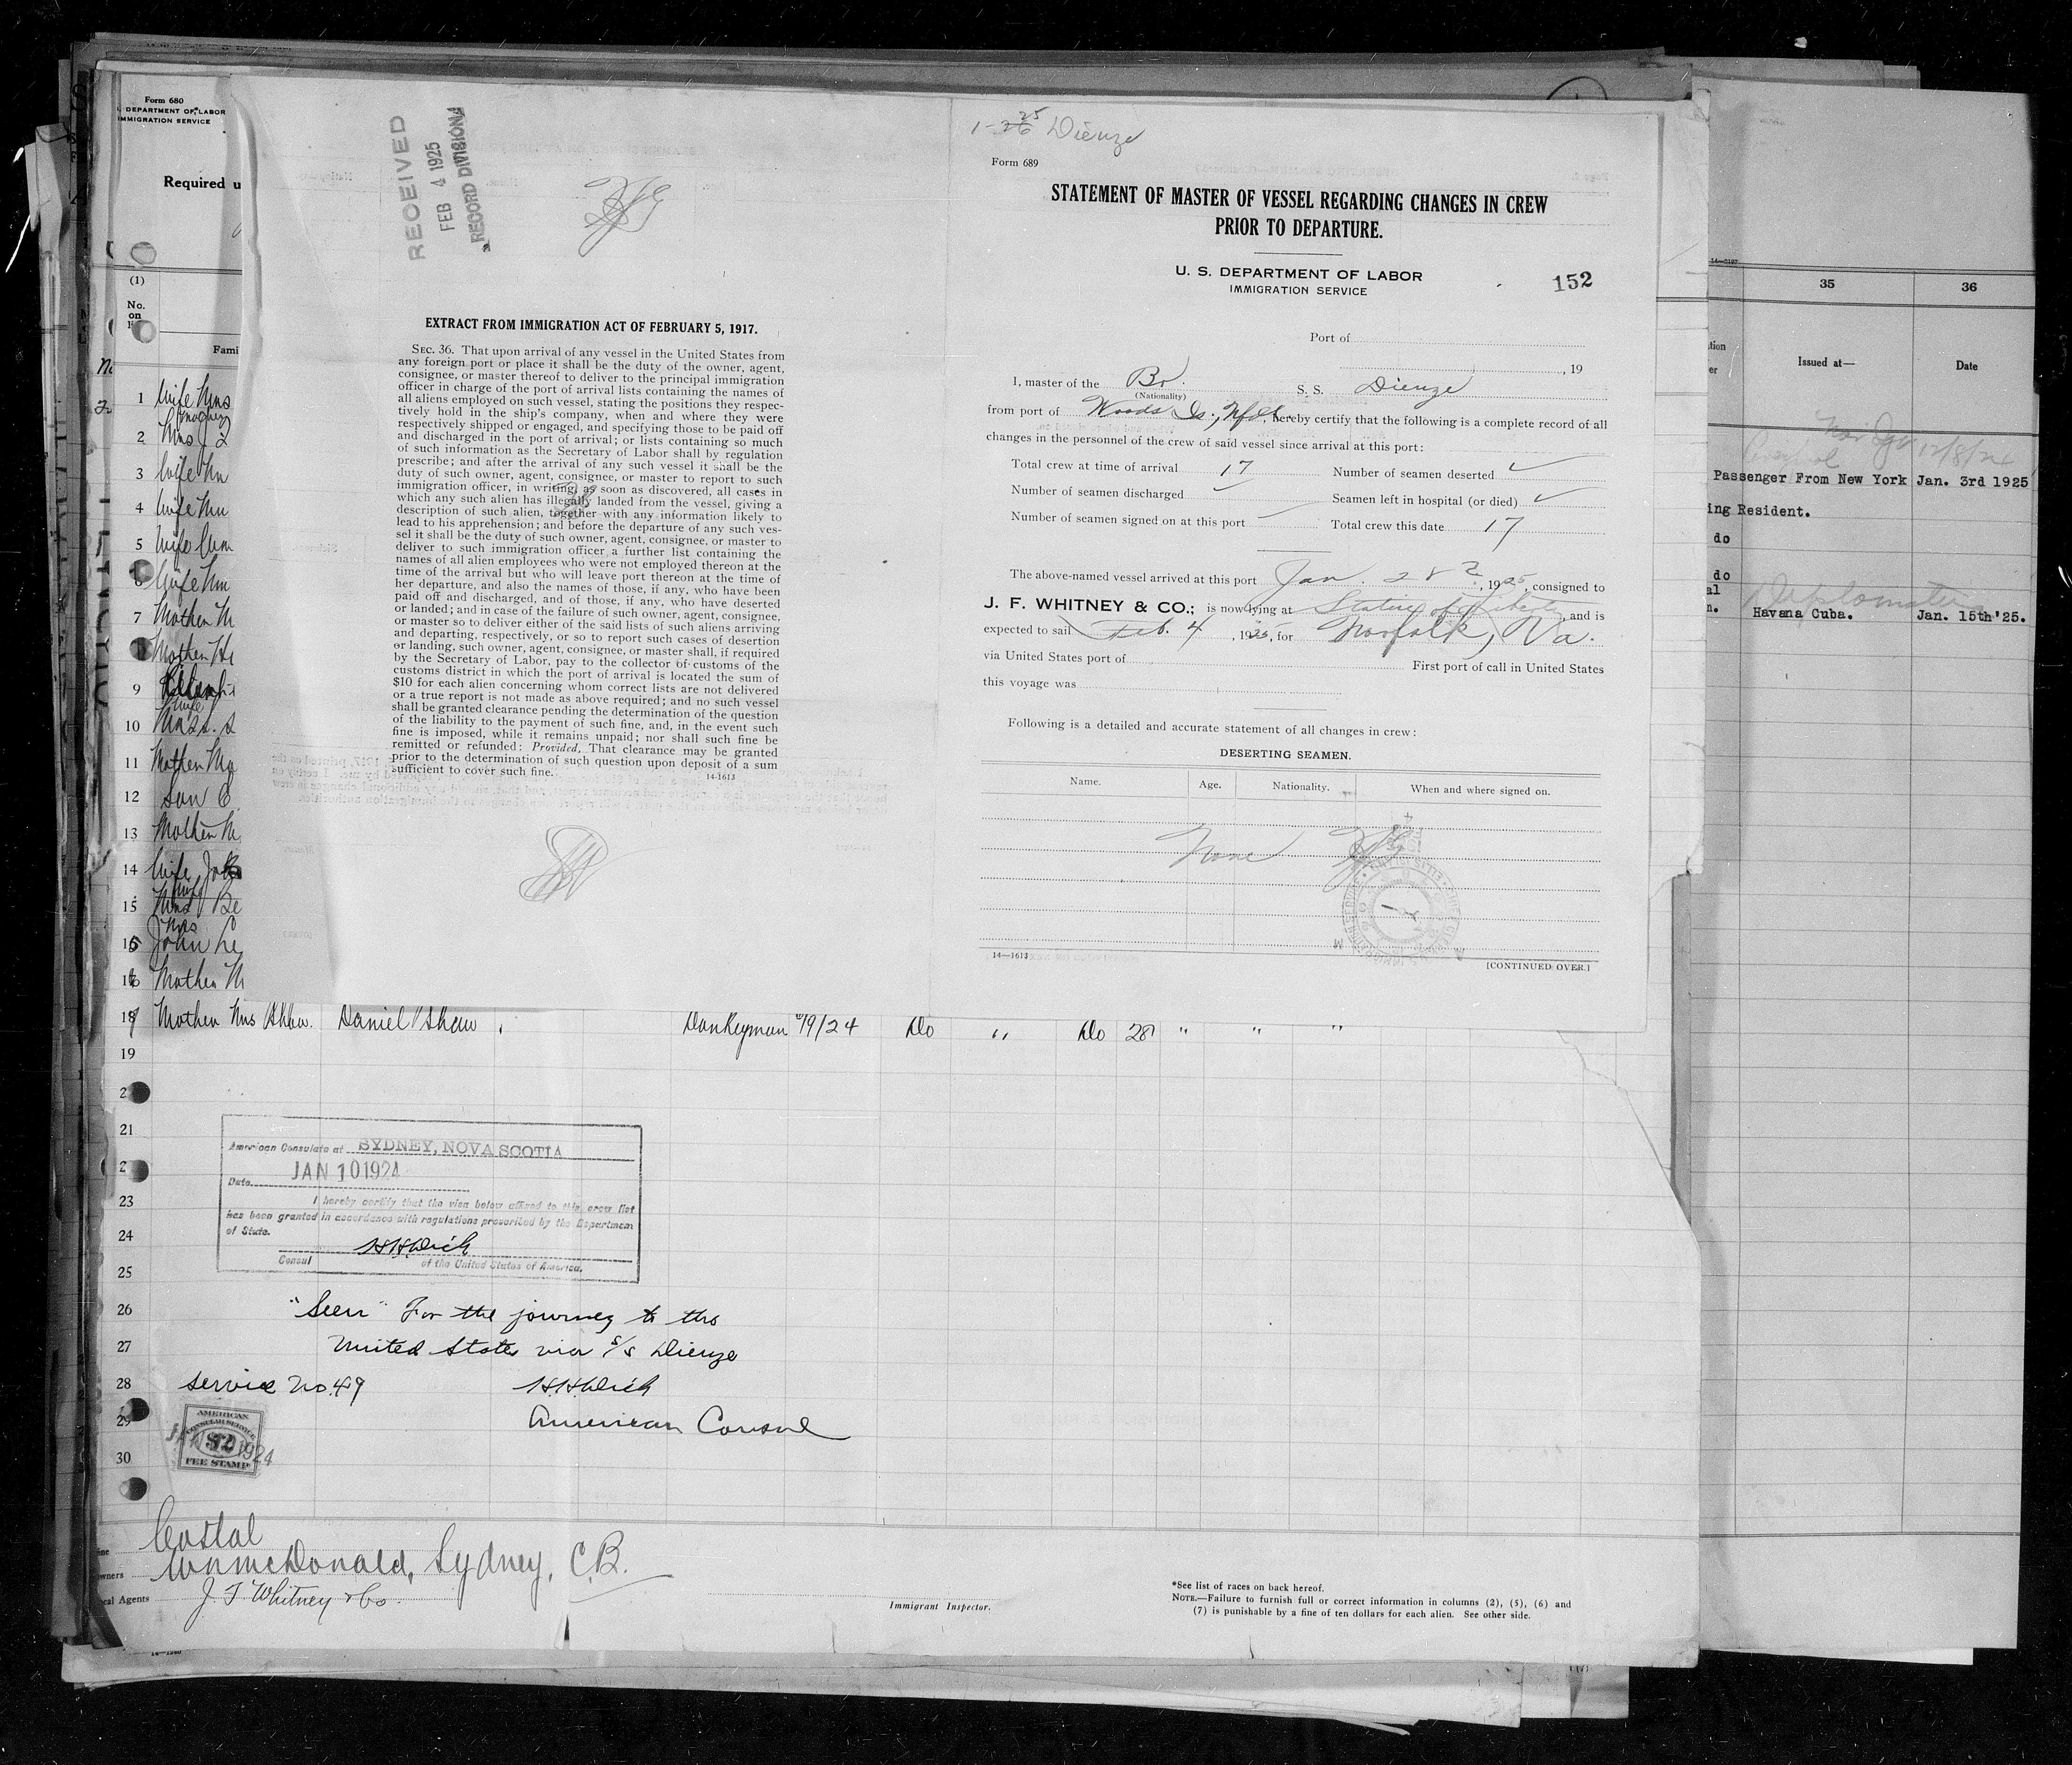 Form 680
DEPARTMENT OF LABOR
IMMIGRATION SERVICE
Required u
(1)
No.
on
Fami
1 Wife Mrs
2 Mrs J
3 Wife
4 Wife
5 Wife
6 Wife
7 Mother M
Mother
9
10
11 Mother
12 Son C
13 Mother
14 Wife
15 Mrs Be
Mrs
John Le
16 Mother M
18 Mother Mrs Shaw. Daniel Shaw Donkeyman 9/24 Do " Do 28 " " "
19
2
21
2
23
24
25
26
27
28
29
30
RECEIVED
FEB 4 1925
RECORD DIVISION
EXTRACT FROM IMMIGRATION ACT OF FEBRUARY 5, 1917.
SEC. 36. That upon arrival of any vessel in the United States from
any foreign port or place it shall be the duty of the owner, agent,
consignee, or master thereof to deliver to the principal immigration
officer in charge of the port of arrival lists containing the names of
all aliens employed on such vessel, stating the positions they respec-
tively hold in the ship's company, when and where they were
respectively shipped or engaged, and specifying those to be paid off
and discharged in the port of arrival; or lists containing so much
of such information as the Secretary of Labor shall by regulation
prescribe; and after the arrival of any such vessel it shall be the
duty of such owner, agent, consignee, or master to report to such
immigration officer, in writing, as soon as discovered, all cases in
which any such alien has illegally landed from the vessel, giving a
description of such alien, together with any information likely to
lead to his apprehension; and before the departure of any such ves-
sel it shall be the duty of such owner, agent, consignee, or master to
deliver to such immigration officer a further list containing the
names of all alien employees who were not employed thereon at the
time of the arrival but who will leave port thereon at the time of
her departure, and also the names of those, if any, who have been
paid off and discharged, and of those, if any, who have deserted
or landed; and in case of the failure of such owner, agent, consignee,
or master so to deliver either of the said lists of such aliens arriving
and departing, respectively, or so to report such cases of desertion
or landing, such owner, agent, consignee, or master shall, if required
by the Secretary of Labor, pay to the collector of customs of the
customs district in which the port of arrival is located the sum of
$10 for each alien concerning whom correct lists are not delivered
or a true report is not made as above required; and no such vessel
shall be granted clearance pending the determination of the question
of the liability to the payment of such fine, and, in the event such
fine is imposed, while it remains unpaid; nor shall such fine be
remitted or refunded: Provided, That clearance may be granted
prior to the determination of such question upon deposit of a sum
sufficient to cover such fine.
14-1613
1-26 25 Dienze
Form 689
STATEMENT OF MASTER OF VESSEL REGARDING CHANGES IN CREW
PRIOR TO DEPARTURE.
U. S. DEPARTMENT OF LABOR
IMMIGRATION SERVICE
152
Port of
, 19
I, master of the Br. S. S. Dienze
(Nationality)
from port of Woods Is., Nfld, hereby certify that the following is a complete record of all
changes in the personnel of the crew of said vessel since arrival at this port:
Total crew at time of arrival 17 Number of seamen deserted
Number of seamen discharged Seamen left in hospital (or died)
Number of seamen signed on at this port Total crew this date 17
The above-named vessel arrived at this port Jan. 28, 1925, consigned to
J. F. WHITNEY & CO.; is now lying at Statue of Liberty, and is
expected to sail Feb. 4, 1925, for Norfolk, Va.
via United States port of First port of call in United States
this voyage was
Following is a detailed and accurate statement of all changes in crew:
DESERTING SEAMEN.
Name. Age. Nationality. When and where signed on.
None
14-1613
[CONTINUED OVER.]
35 36
Issued at— Date
Passenger From New York Jan. 3rd 1925
ing Resident.
do
do
Diplomatic
Havana Cuba. Jan. 15th '25.
American Consulate at SYDNEY, NOVA SCOTIA
Date JAN 10 1924
I hereby certify that the visa below affixed to this crew list
has been granted in accordance with regulations prescribed by the Departmen
of State.
Consul of the United States of America.
"Seen" For the journey to the
United States via S/S Dienze
Service No. 49
American Consul
AMERICAN
CONSULAR SERVICE
$2
FEE STAMP
JAN 1924
Coastal
McDonald, Sydney, C.B.
wners
cal Agents J. F Whitney & Co.
Immigrant Inspector.
*See list of races on back hereof.
NOTE.—Failure to furnish full or correct information in columns (2), (5), (6) and
(7) is punishable by a fine of ten dollars for each alien. See other side.